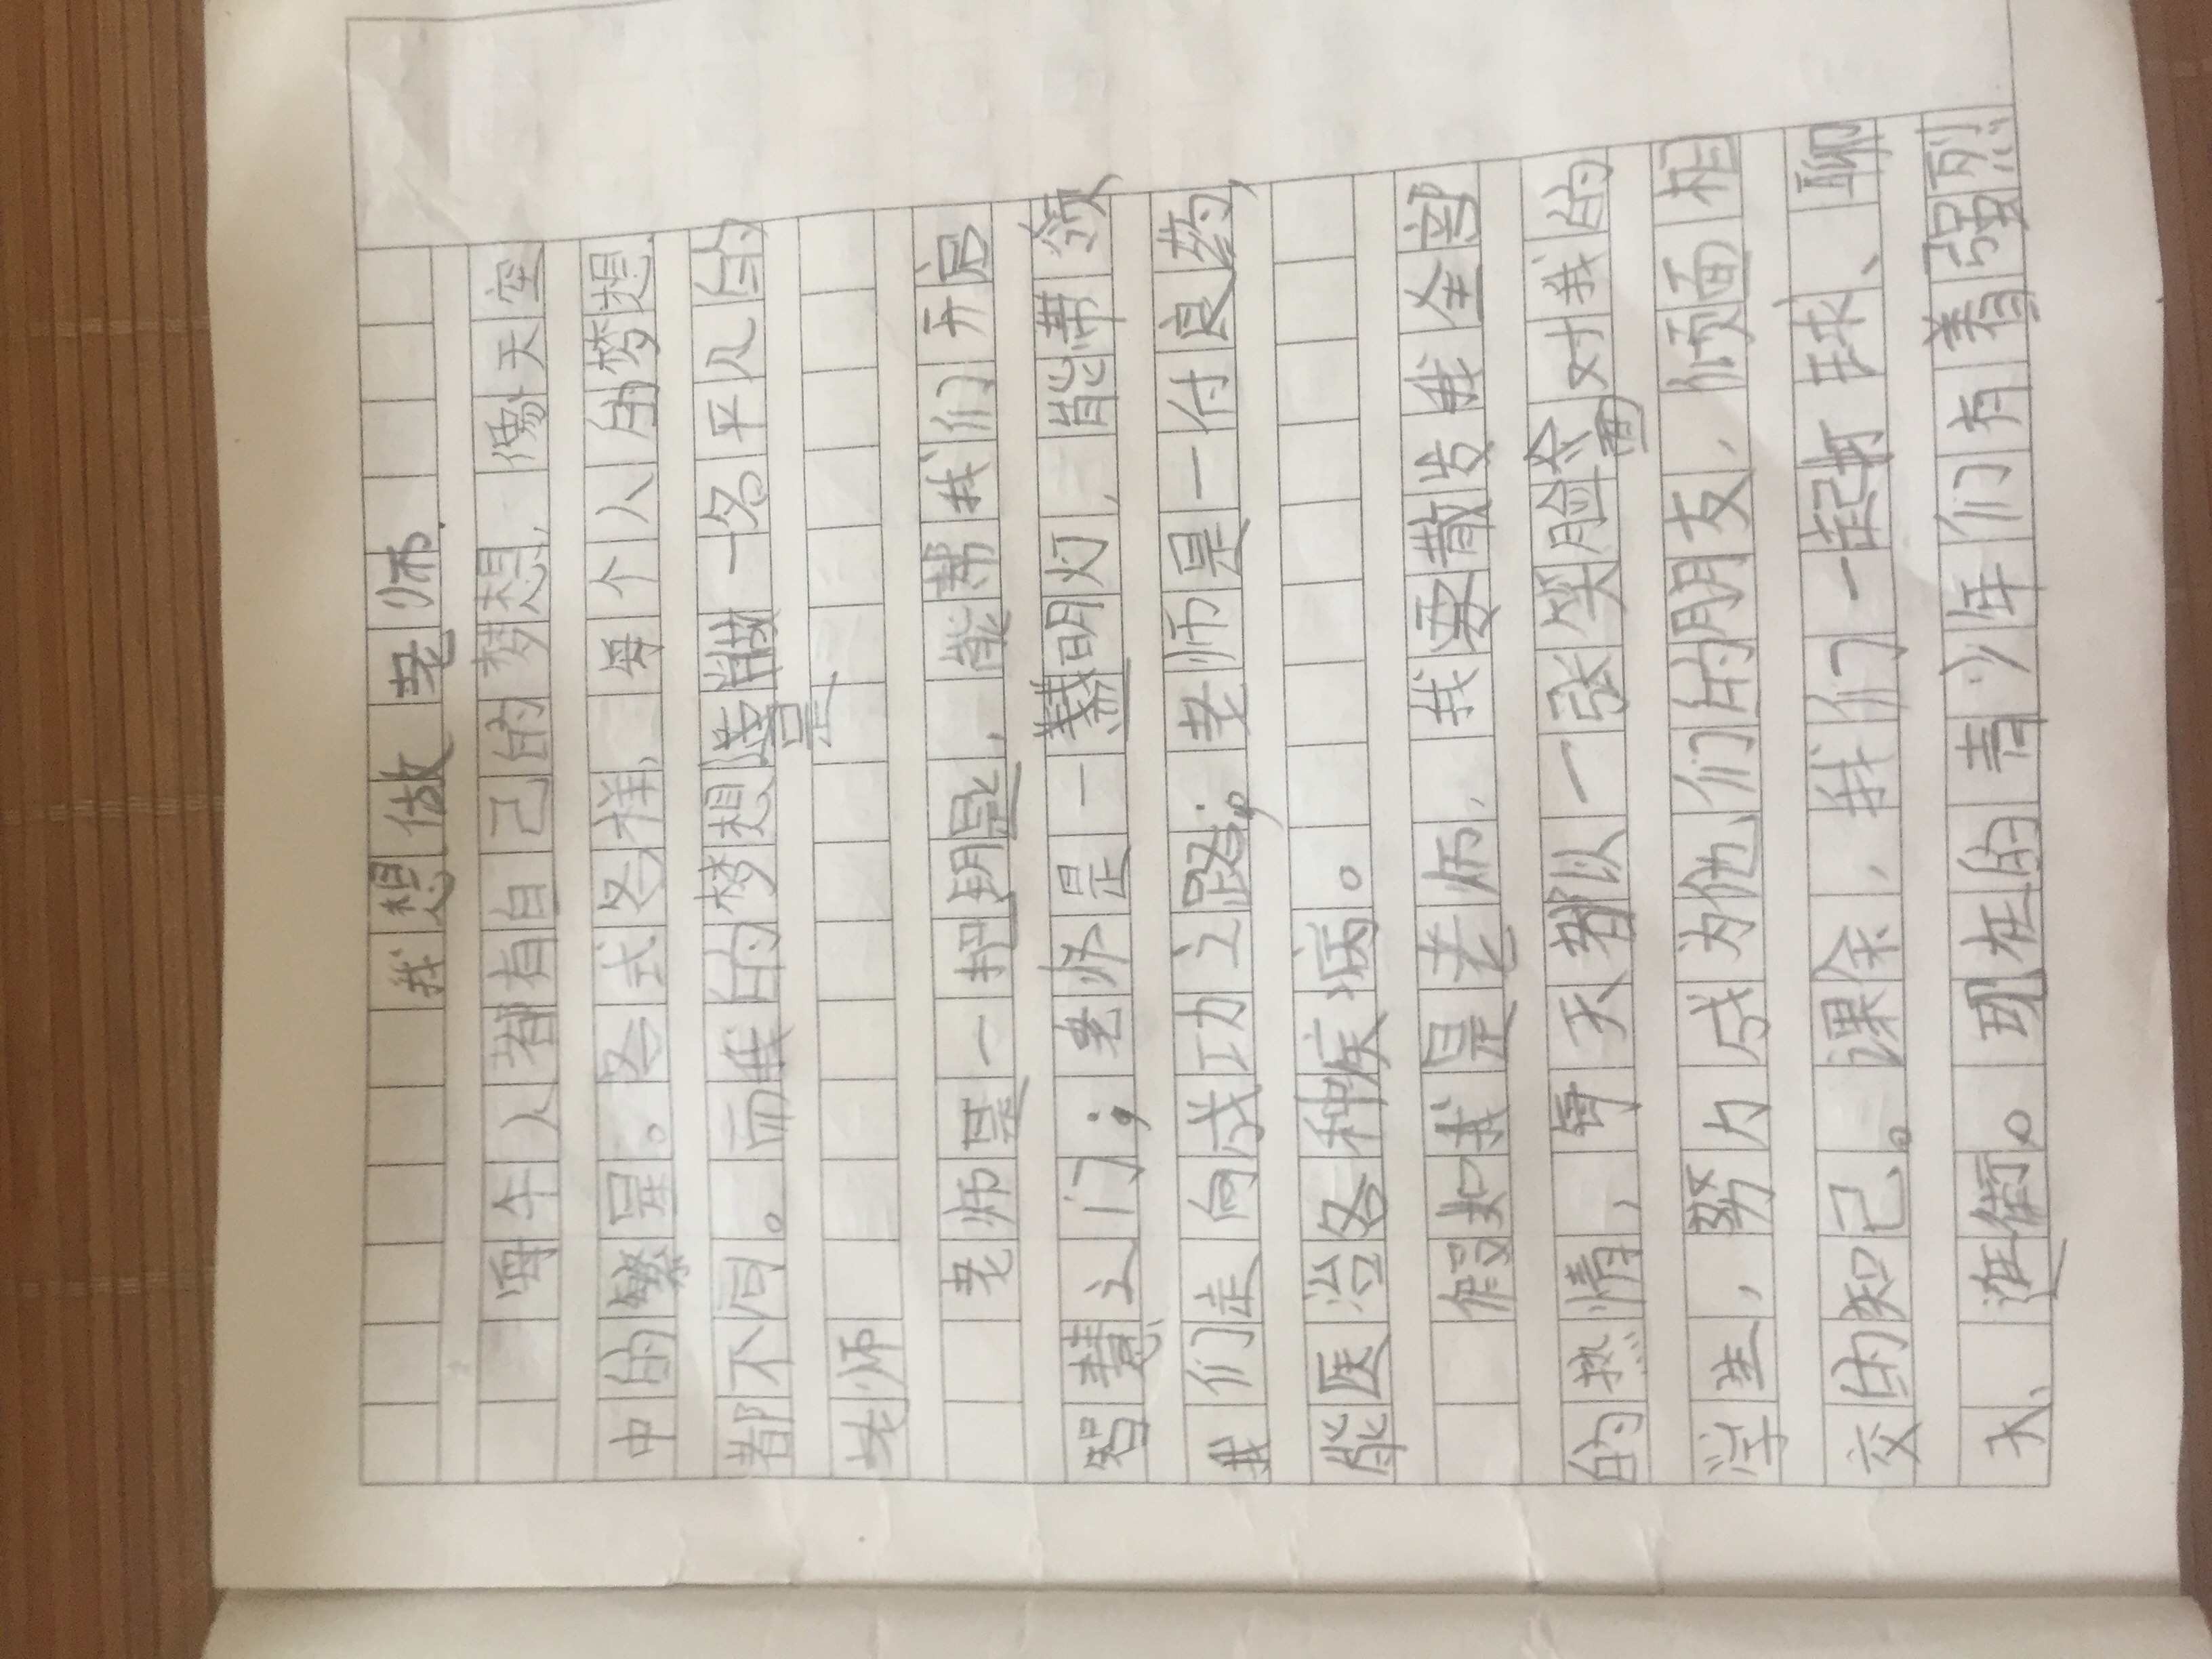 我想做老师
每个人都有自己的梦想,像天空
中的繁星。各式各样,每个人的梦想
都不同。而我的梦想是做一名平凡的
老师
老师是一把钥匙,能帮我们开启
智慧之门;老师是一盏明灯,能带领
我们走向成功之路;老师是一付良药,
能医治各种疾病。
假如我是老师,我要散发我全部
的热情,每天都以一张笑脸面对我的
学生,努力成为他们的朋友,倾面相
交的知己。课余,我们一起打球、聊
天、逛街。现在的青少年们有着强烈